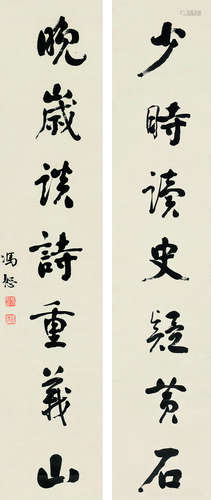 少時讀史疑黃石
晚歲談詩重義山
馮恕